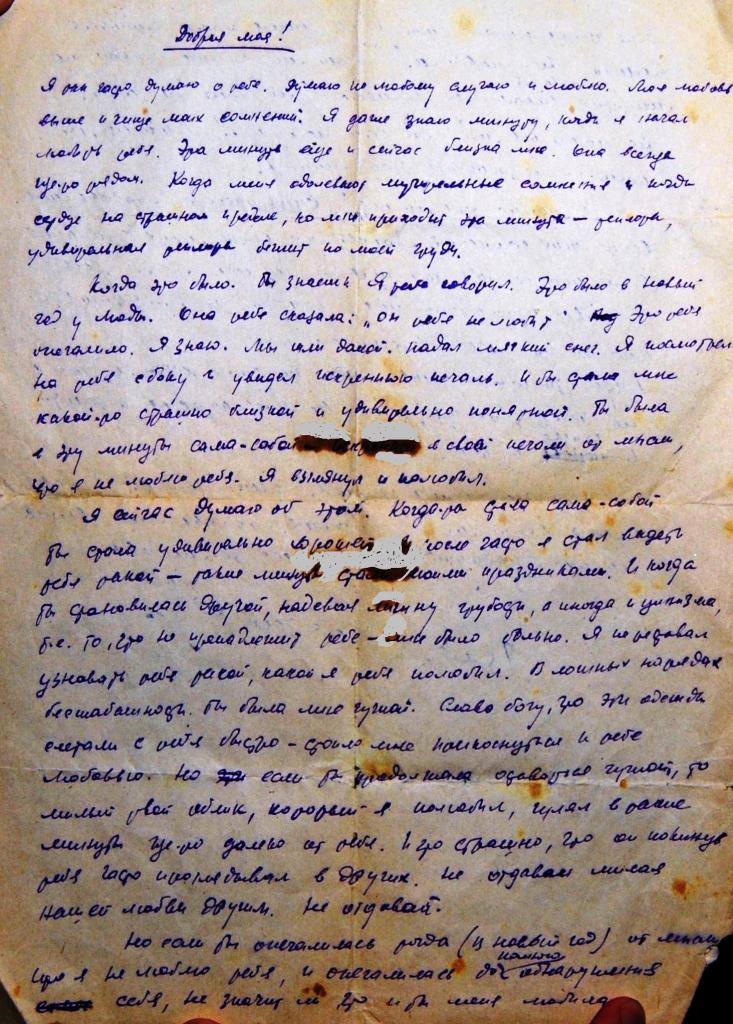 Добрая моя!
Я так часто думаю о тебе. Думаю по любому случаю и люблю. Моя любовь
выше и чище моих сомнений. Я даже знаю минуту, когда я начал
любить тебя. Эта минута еще и сейчас близка мне. Она всегда
где-то рядом. Когда меня одолевают мучительные сомнения и когда
сердце на страшном пределе, ко мне приходит эта минута – теплота,
удивительная теплота бежит по моей груди.
Когда это было. Ты знаешь я тебе говорил. Это было в новый
год у Люды. Она тебе сказала: „он тебя не любит" Это тебя
опечалило. Я знаю. Мы шли домой. Падал мягкий снег. Я посмотрел
на тебя сбоку и увидел искреннюю печаль. И ты стала мне
какой-то страшно близкой и удивительно понятной. Ты была
в эту минуту сама-собой в своей печали от мысли,
что я не люблю тебя. Я взглянул и полюбил.
Я сейчас думаю об этом. Когда-то став сама-собой
ты стала удивительно хорошей и после часто я стал видеть
тебя такой – такие минуты стали моими праздниками. И когда
ты становилась другой, надевая личину грубости, а иногда и цинизма,
т.е. то, что не принадлежит тебе – мне было больно. Я переставал
узнавать тебя такой, какой я тебя полюбил. В пошлых нарядах
бесшабашности ты была мне чужой. Слава богу, что эти одежды
слетали с тебя быстро – стоило мне прикоснуться к тебе
любовью. Но если ты продолжала оставаться чужой, то
милый твой облик, который я полюбил, гулял в такие
минуты где-то далеко от тебя. И это страшно, что он покинув
тебя часто проглядывал в других. Не отдавай милая
нашей любви другим. Не отдавай.
Но если ты опечалилась тогда (в новый год) от мысли
что я не люблю тебя, и опечалилась до полного обнаружения
себя, не значит ли это и ты меня любила